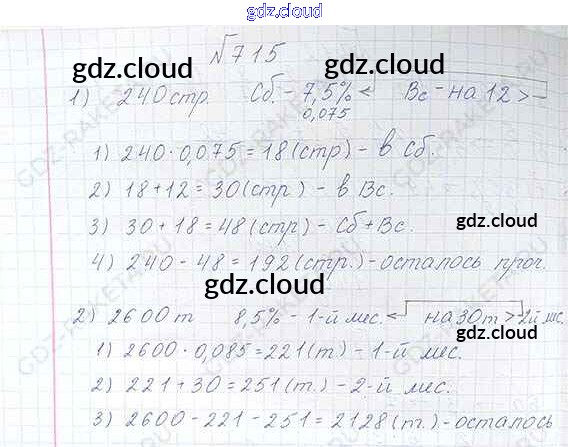 gdz.cloud
№715
gdz.cloud gdz.cloud
1) 240стр. Сб. - 7,5% < Вс - на 12 >
0,075
1) 240 · 0,075 = 18 (стр) - в Сб.
2) 18 + 12 = 30 (стр) - в Вс.
3) 30 + 18 = 48 (стр) - Сб + Вс.
gdz.cloud
4) 240 - 48 = 192 (стр.) - осталось проч.
gdz.cloud
2) 2600т 8,5% - 1-й мес. < на 30т > 2й мес.
gdz.cloud
1) 2600 · 0,085 = 221 (т) - 1-й мес.
2) 221 + 30 = 251 (т.) - 2-й мес.
3) 2600 - 221 - 251 = 2128 (т.) - осталось